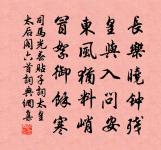 長樂曉鐘殘
皇輿入問安
東風猶料峭
絮御餘寒
司馬光春貼子詞太皇
太后閣六首詞典網